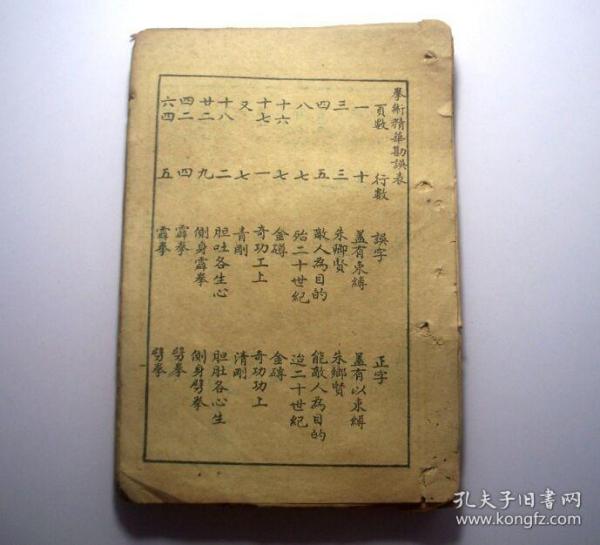 拳術精華勘誤表
頁數 行數 誤字 正字
一 十 蓋有束縛 蓋有以束縛
三 三 朱卿賢 朱鄉賢
四 五 敵人為目的 能敵人為目的
八 七 殆二十世紀 迨二十世紀
十六 七 金磚 金磚
十七 一 奇功工上 奇功功上
又 七 青剛 清剛
十八 二 胆吐各生心 胆肚各心生
廿二 九 側身霹拳 側身劈拳
四二 四 霹拳 劈拳
六四 五 霹拳 劈拳
孔夫子旧書网
www.kongfz.com